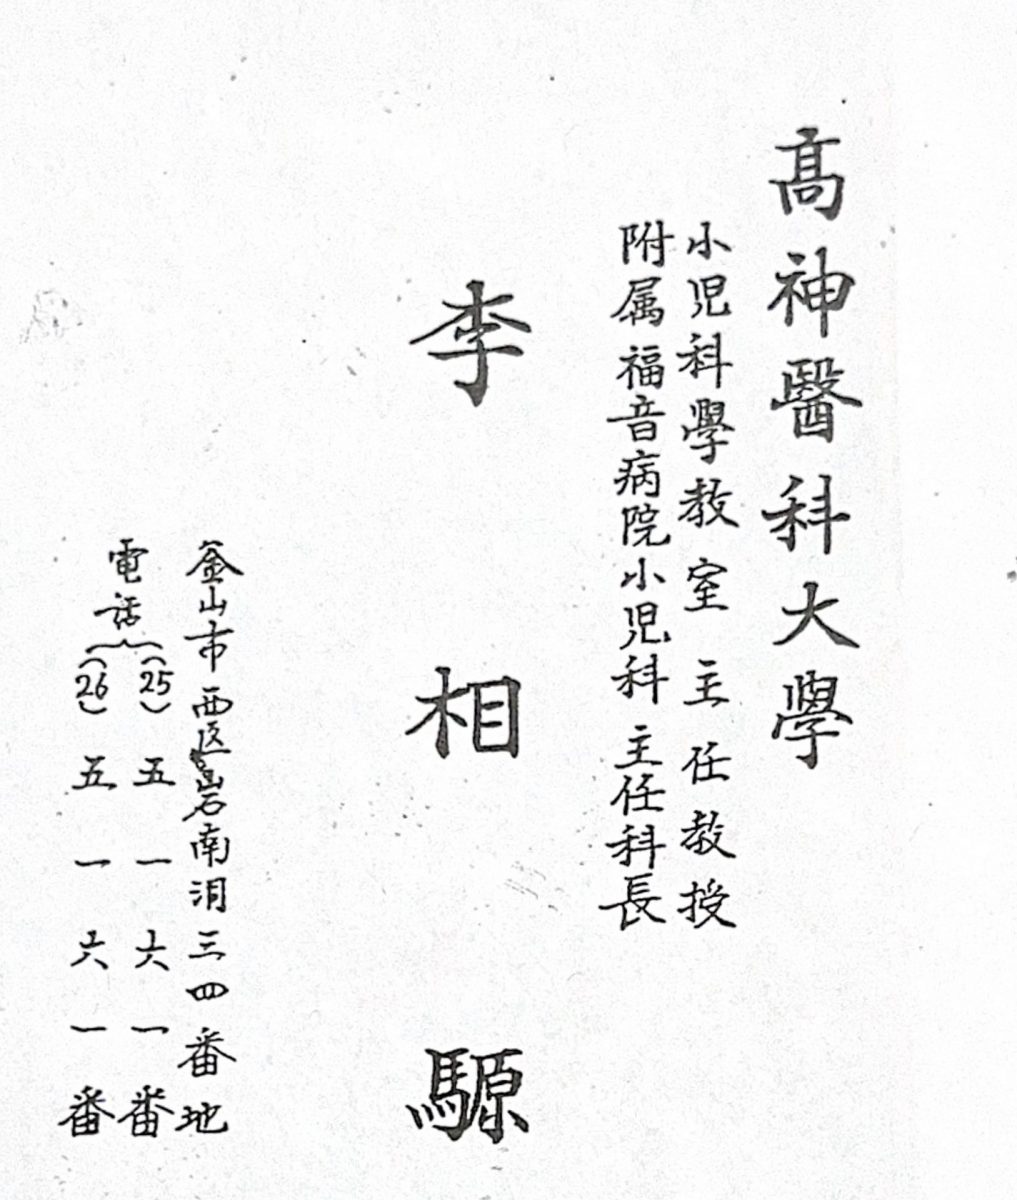 高神醫科大學
小児科學教室主任教授
附属福音病院小児科主任科長
李相騵
釜山市西区岩南洞三四番地
電話
(25)五一六一番
(26)五一六一番